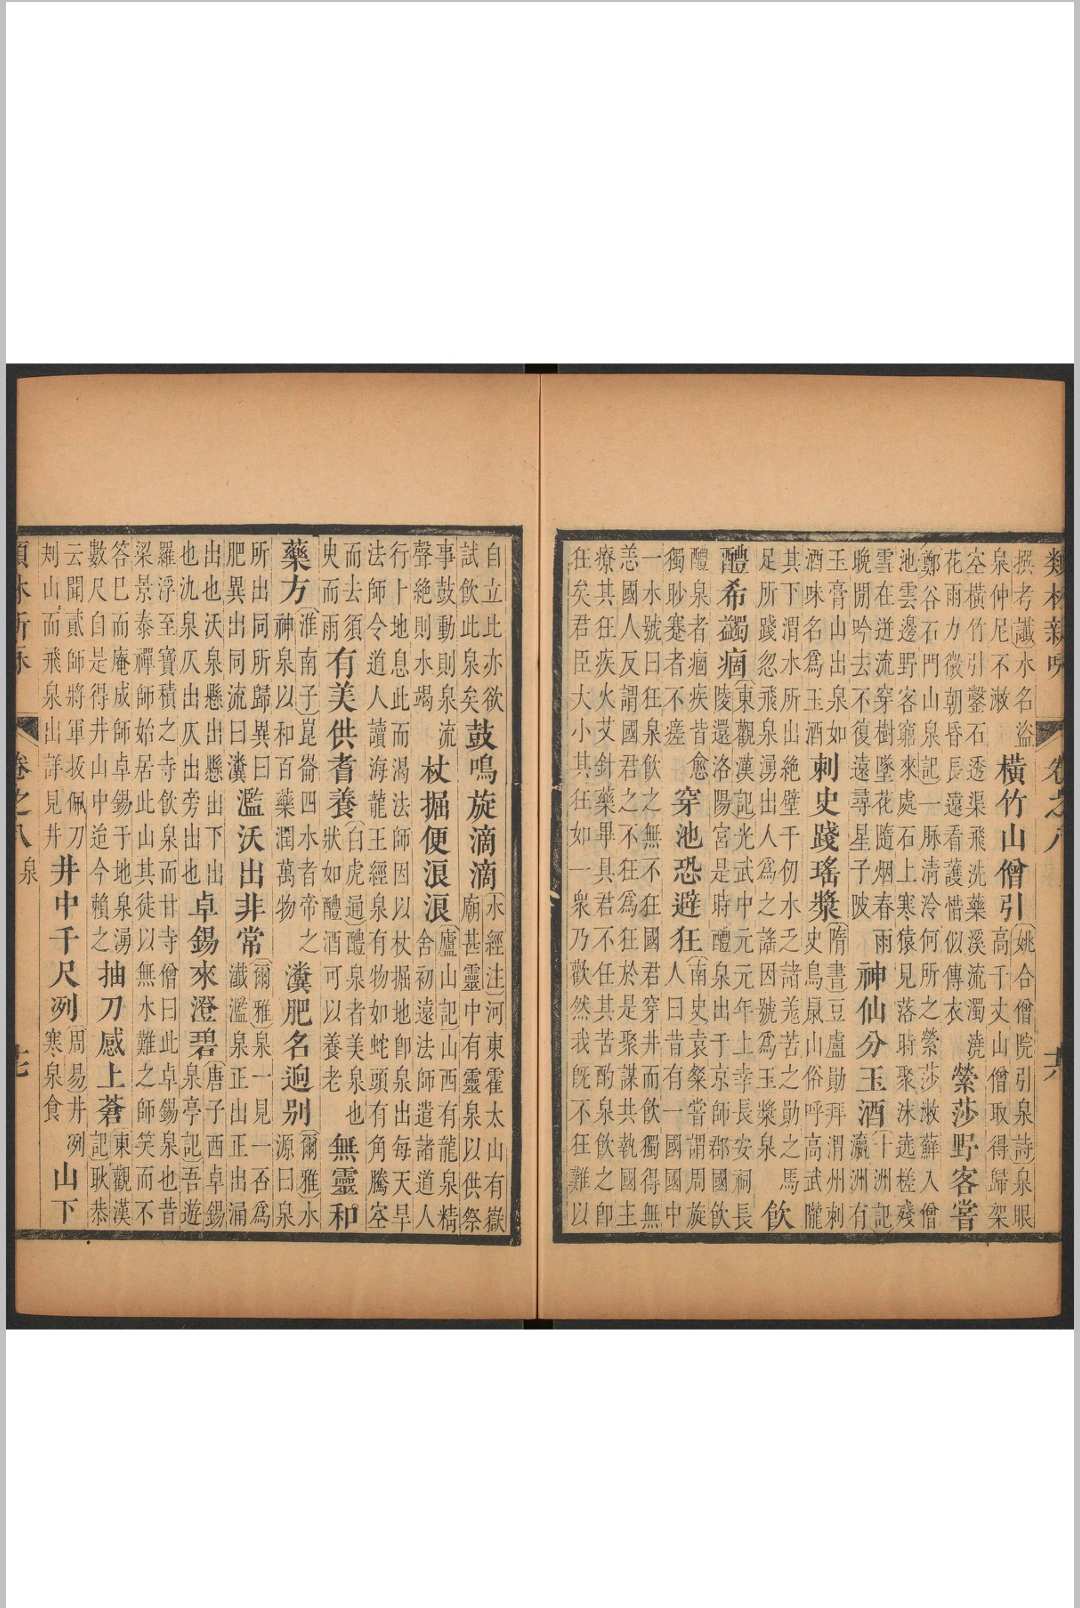 類林新咏 卷之八 廿六
撰考讖水名盜
泉仲尼不漱
橫竹山僧引
姚合僧院引泉詩泉眼
高千丈山僧取得歸架
空橫竹引鑿石透渠飛洗藥溪流濁澆
花雨力微朝昏長遠看護惜似傳衣
縈莎野客嘗
鄭谷石門山泉記一脉清泠何所之縈莎漱蘚入僧
池雲邊野客竆來處石上寒猿見落時聚沫迸槎殘
雪在迸流穿樹墜花隨烟春雨
晚閒吟去不復遠尋星子陂
神仙分玉酒
十洲記
瀛洲有
玉膏山出泉如
酒味名爲玉酒
刺史踐瑤漿
隋書豆盧勣拜渭州刺
史鳥鼠山俗呼高武隴
其下渭水所出絶壁千仞水乏諸羗苦之勣之馬
足所踐忽飛泉湧出人爲之謠因號爲玉漿泉
飲
醴希蠲痼
東觀漢記光武中元元年上幸長安祠長
陵還洛陽宮是時醴泉出于京師郡國飲
醴泉者痼疾昔愈
獨眇蹇者不瘥
穿池恐避狂
南史袁粲嘗謂周旋
人曰昔有一國國中
一水號曰狂泉飲之無不狂國君穿井而飲獨得無
恙國人反謂國君之不狂爲狂於是聚謀共執國主
療其狂疾火艾針藥畢具君不任其苦酌泉飲之卽
狂矣君臣大小其狂如一衆乃歡然我旣不狂難以
自立此亦欲
試飲此泉矣
鼓鳴旋滴滴
水經注河東霍太山有嶽
廟甚靈中有靈泉以供祭
事鼓動則泉流
聲絶則水竭
杖掘便浪浪
廬山記山西有龍泉精
舍初遠法師遣諸道人
行卜地息此而渴法師因以杖掘地卽泉出每天旱
法師令道人讀海龍王經泉有物如蛇頭有角騰空
而去須
臾而雨
有美供耆養
白虎通醴泉者美泉也
狀如醴酒可以養老
無靈和
藥方
淮南子崑崙四水者帝之
神泉以和百藥潤萬物
瀵肥名逈别
爾雅水
源曰泉
所出同所歸異曰
肥異出同流曰瀵
濫沃出非常
爾雅泉一見一否爲
瀸濫泉正出正出涌
出也沃泉懸出懸出下出
也氿泉仄出仄出旁出也
卓錫來澄碧
唐子西卓錫
泉亭記吾遊
羅浮至寶積之寺飲泉而甘寺僧曰此卓錫泉也昔
梁景泰禪師始居此山其徒以無水難之師笑而不
答巳而庵成師卓錫于地泉湧
數尺自是得井山中迨今賴之
抽刀感上蒼
東觀漢
記耿恭
云聞貳師將軍拔佩刀
刺山而飛泉出詳見井
井中千尺冽
周易井冽
寒泉食
山下
類林新咏 卷之八 泉 廿七